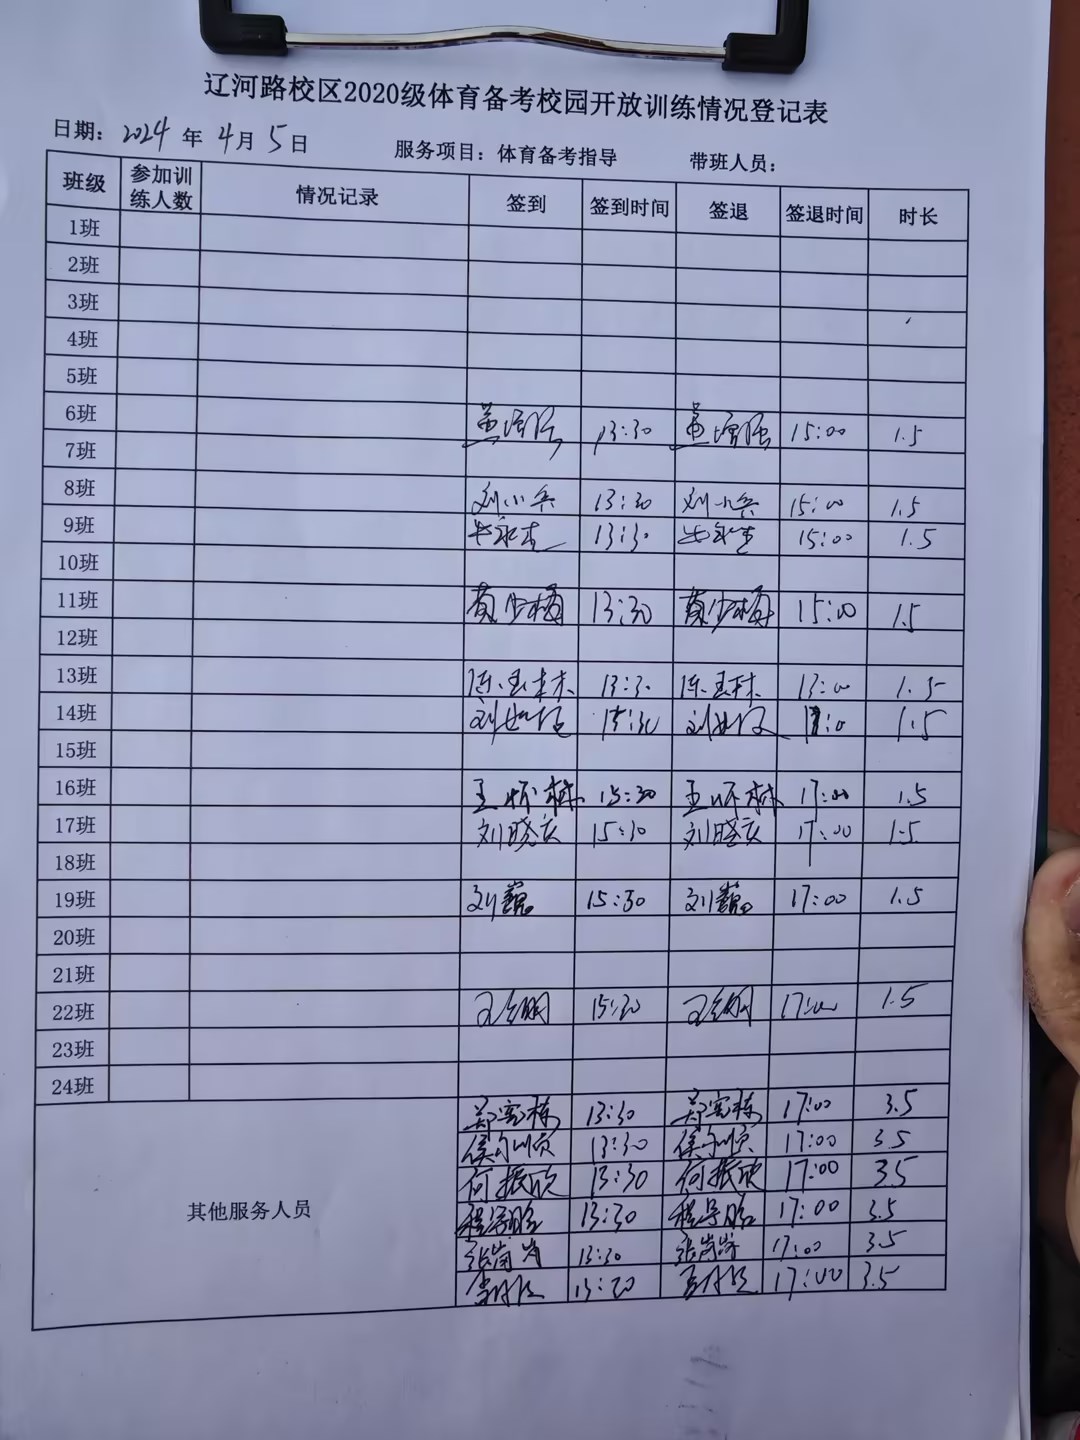 辽河路校区2020级体育备考校园开放训练情况登记表
日期: 2024 年 4月 5日 服务项目: 体育备考指导 带班人员:
班级 参加训练人数 情况记录 签到 签到时间 签退 签退时间 时长
1班
2班
3班
4班
5班
6班 13:30 15:00 1.5
7班
8班 刘小兵 13:30 刘小兵 15:00 1.5
9班 13:30 15:00 1.5
10班
11班 黄少梅 13:30 黄少梅 15:00 1.5
12班
13班 陈玉林 13:30 陈玉林 13:00 1.5
14班 1.5
15班
16班 王怀林 15:30 王怀林 17:00 1.5
17班 刘晓庆 15:30 刘晓庆 17:00 1.5
18班
19班 刘巍 15:30 刘巍 17:00 1.5
20班
21班
22班 15:30 17:00 1.5
23班
24班
其他服务人员
郑宪栋 13:30 郑宪栋 17:00 3.5
13:30 17:00 3.5
何振欣 13:30 何振欣 17:00 3.5
13:30 17:00 3.5
张岗岗 13:30 张岗岗 17:00 3.5
17:00 3.5